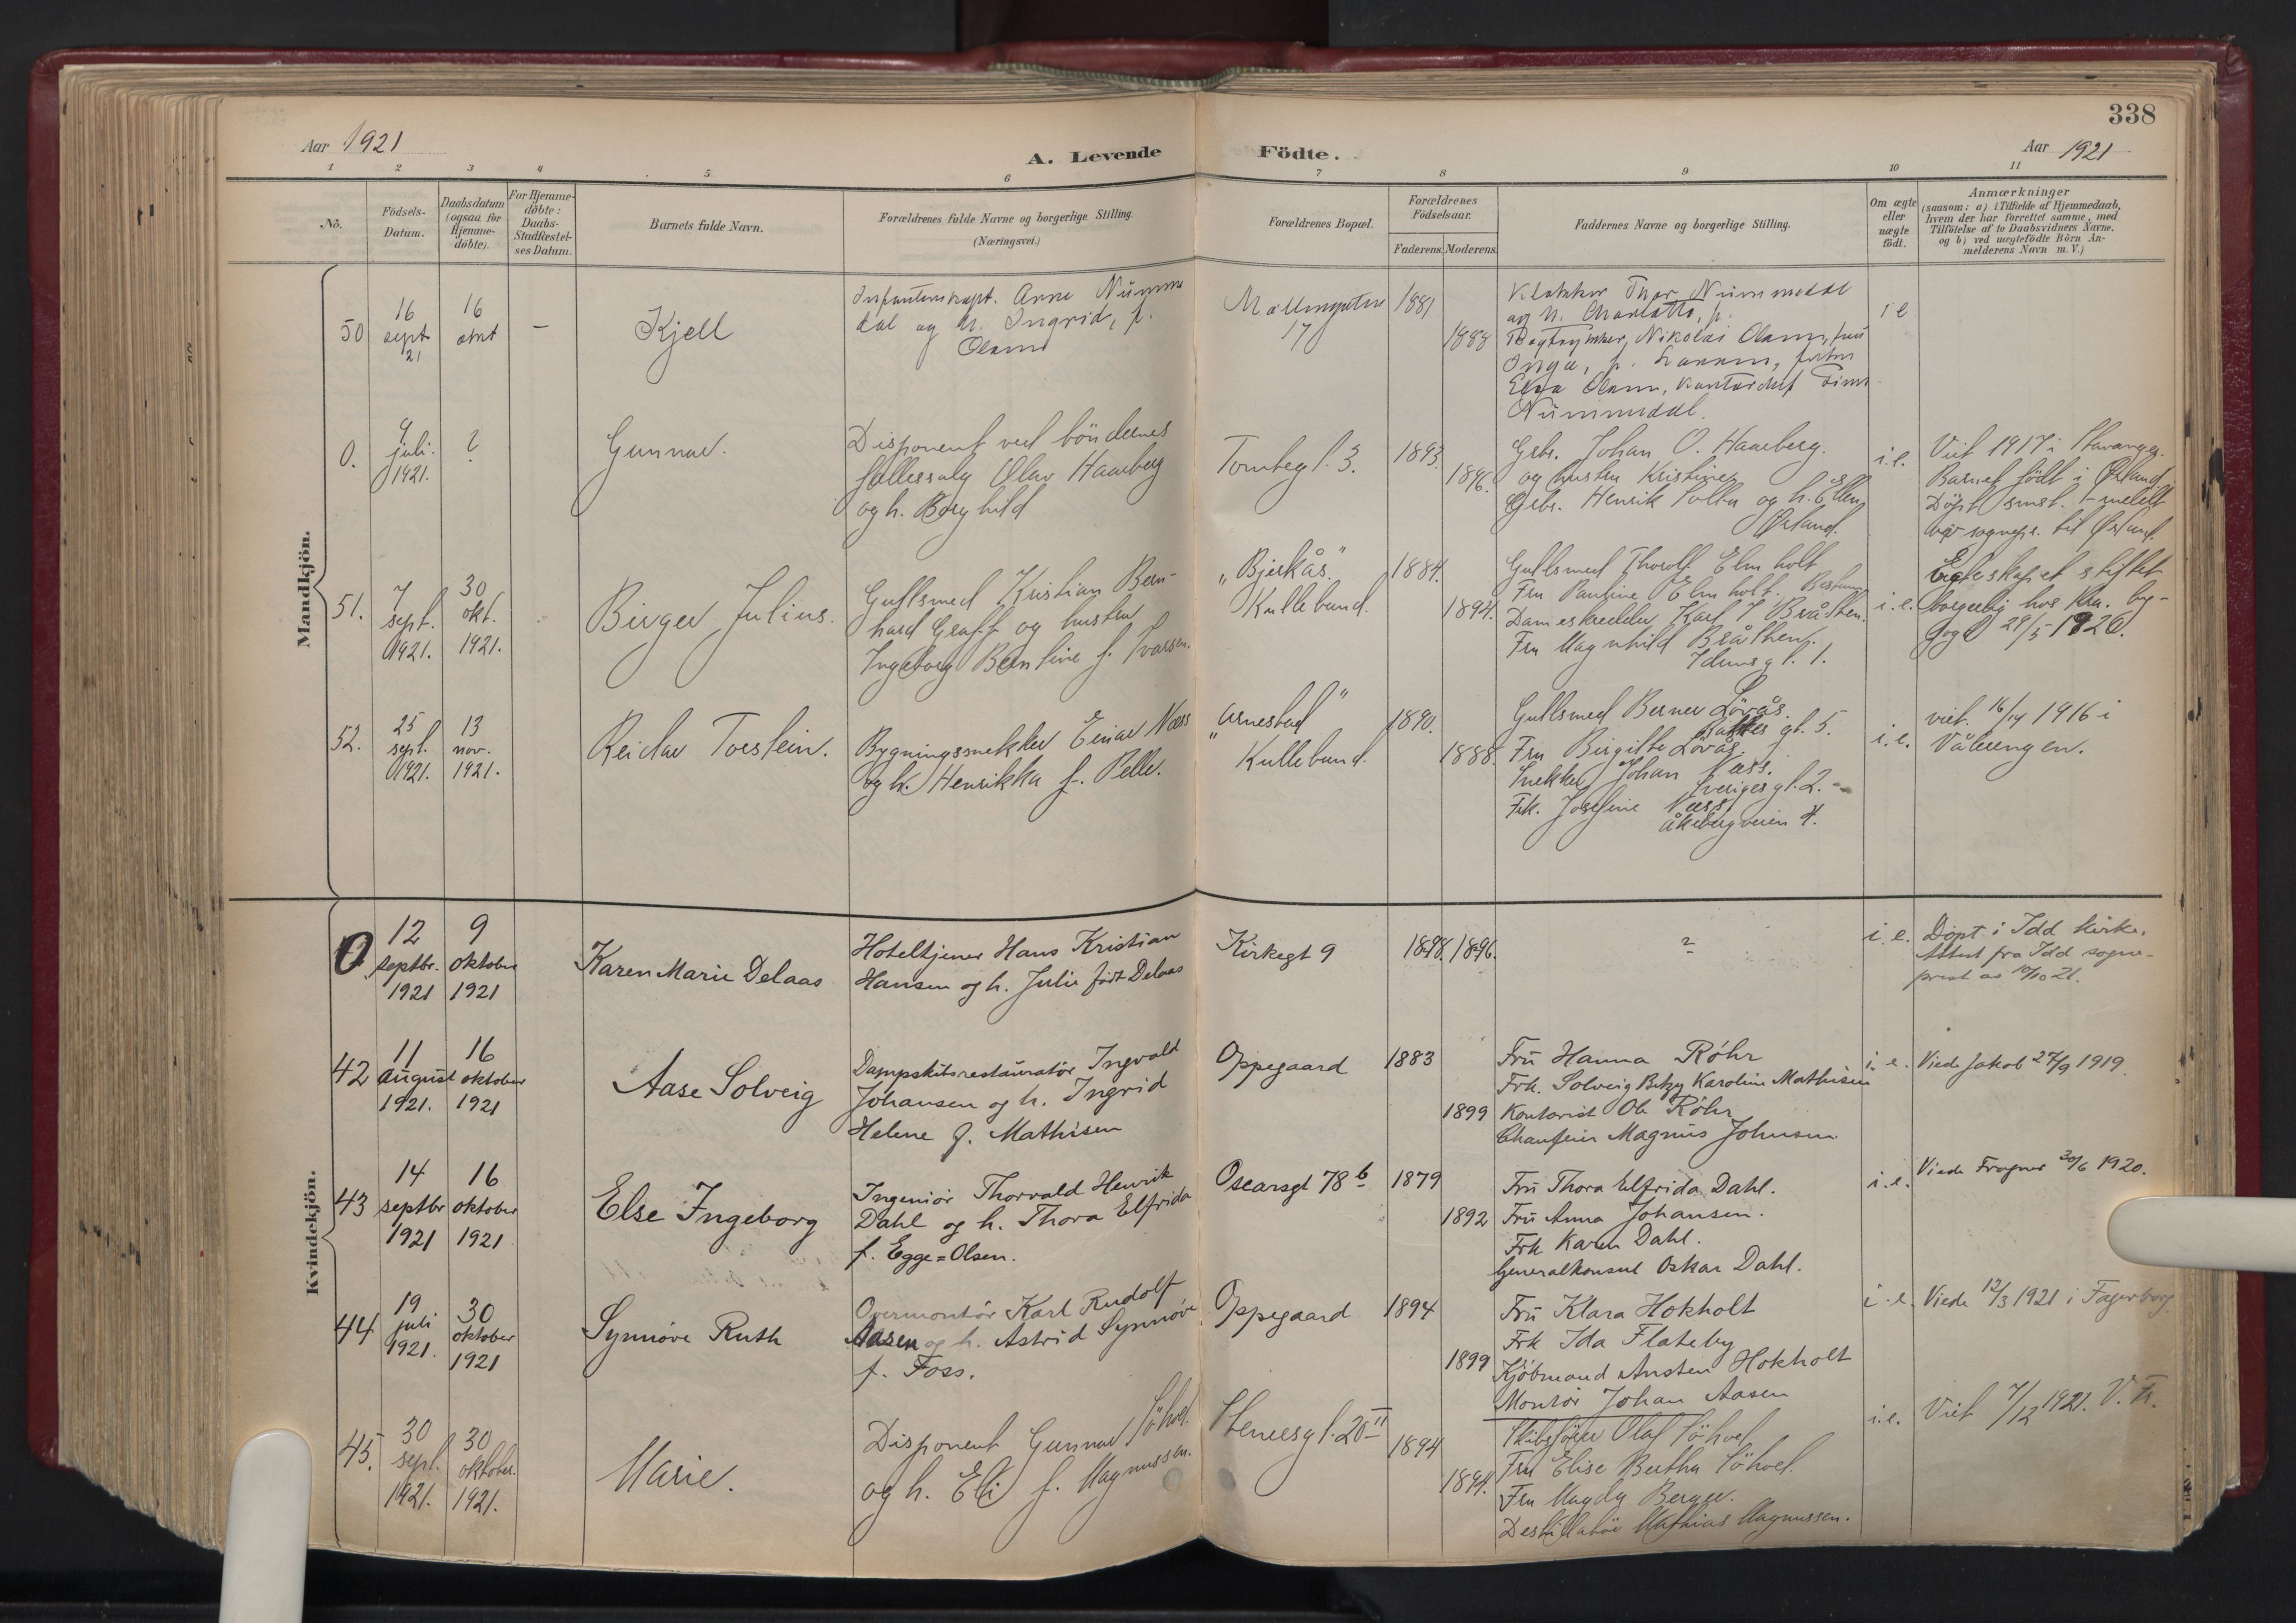 338
Aar 1921
A. Levende Födte.
Aar 1921
1 2 3 4 5 6 7 8 9 10 11
No.
Födsels-
Datum.
Daabsdatum
(ogsaa for
Hjemme-
döbte).
For Hjemme-
döbte:
Daabs-
Stadfæstel-
ses Datum.
Barnets fulde Navn.
Forældrenes fulde Navne og borgerlige Stilling.
(Næringsvei.)
Forældrenes Bopæl.
Forældrenes
Födselsaar.
Faderens. Moderens.
Faddernes Navne og borgerlige Stilling.
Om ægte
eller
uægte
födt.
Anmærkninger
(saasom: a) i Tilfælde af Hjemmedaab,
hvem der har forrettet samme, med
Tilföielse af to Daabsvidners Navne,
og b) ved uægtefödte Börn An-
melderens Navn m. V.)
Mandkjön.
50
16
sept
21
16
okt
–
Kjell
Arne Numme
dal og h. Ingrid, f.
17
1881
1888
Thor Nummedal
og h. Charlotte, f.
Nikolai
Inga, f.
Nummedal.
i e
0.
9
juli.
1921.
?
Gunnar.
Disponent ved böndernes
fællessalg Olav Haarberg
og h. Borghild
Tornbegt. 3.
1893.
1896.
Grbr. Johan O. Haarberg.
og hustru Kristine,
Grbr. Henrik og h. Ellen,
Ørland.
i.e.
Viet 1917 i Stavanger.
Barnet födt i Ørland.
Döpt smst.
sognepr. til Ørland.
51.
7
sept.
1921.
30
okt.
1921.
Birger Julius.
Gullsmed Kristian Bern-
hard Graff og hustru
Ingeborg Berntine f. Ivarsen.
„Bjerkås."
Kullebund.
1884.
1894.
Gullsmed Thorolf Elmholt
Fru Pauline Elmholt. Bestum
Dameskredder Karl J. Bråthen.
Fru Magnhild Bråthen.
Idunsgt. 1.
i.e.
Egteskapet stiftet
borgerlig hos Kra. by-
fogd 29/5 1920.
52.
25
sept.
1921.
13
nov.
1921.
Reidar Torstein.
Bygningssnekker Einar Næss
og h. Henrikka f. Pelle.
„Arnestad"
Kullebund.
1890.
1888.
Gullsmed Berner Lövås.
gt. 5.
Fru Birgitte Lövås.
Snekker Johan Næss.
Sverigesgt. 2.
Frk. Josefine Næss
Åkebergveien 4.
i.e.
viet. 1916 i
Vålerengen.
Kvindekjön.
0
12
septbr.
1921
9
oktober
1921
Karen Marie Delaas
Hoteltjener Hans Kristian
Hansen og h. Julie født Delaas
Kirkegt 9
1898.
1896.
?
i. e.
Döpt i Idd kirke.
Attest fra Idd sogne-
prest av 10/10 21.
42
11
august
1921.
16
oktober
1921
Aase Solveig
Dampskibsrestauratør Ingvald
Johansen og h. Ingrid
Helene f. Mathisen
Oppegaard
1883
1899
Fru Hanna Røhr
Frk. Solveig Betzy Karoline Mathisen
Kontorist Ole Røhr
Chauffeur Magnus Johnsen
i. e.
Viede Jakob 27/9 1919.
43
14
septbr
1921
16
oktober
1921
Else Ingeborg
Ingeniør Thorvald Henrik
Dahl og h. Thora Elfrida
f. Egge=Olsen.
Oscarsgt 78 b
1879
1892
Fru Thora Elfrida Dahl.
Fru Anna Johansen.
Frk Karen Dahl.
Generalkonsul Oskar Dahl.
i. e.
Viede Frogner 30/6 1920.
44
19
juli
1921.
30
oktober
1921
Synnøve Ruth
Overmontör Karl Rudolf
Aasen og h. Astrid Synnøve
f. Foss.
Oppegaard
1894
1899
Fru Klara Hokholt
Frk Ida Flateby
Kjöbmand Ansten Hokholt
Montör Johan Aasen
i. e.
Viede 12/3 1921 i Fagerborg.
45.
30
sept.
1921.
30
oktober.
1921.
Marie.
Disponent Gunnar
og h. Eli f. Magnussen.
Stenersgt. 20 II
1894
1894.
Skibsförer Olaf
Fru Elise Bertha
Fru Magda Berger.
Destillatör Mathias Magnussen.
i. e.
Viet 7/12 1921. V. Fr.